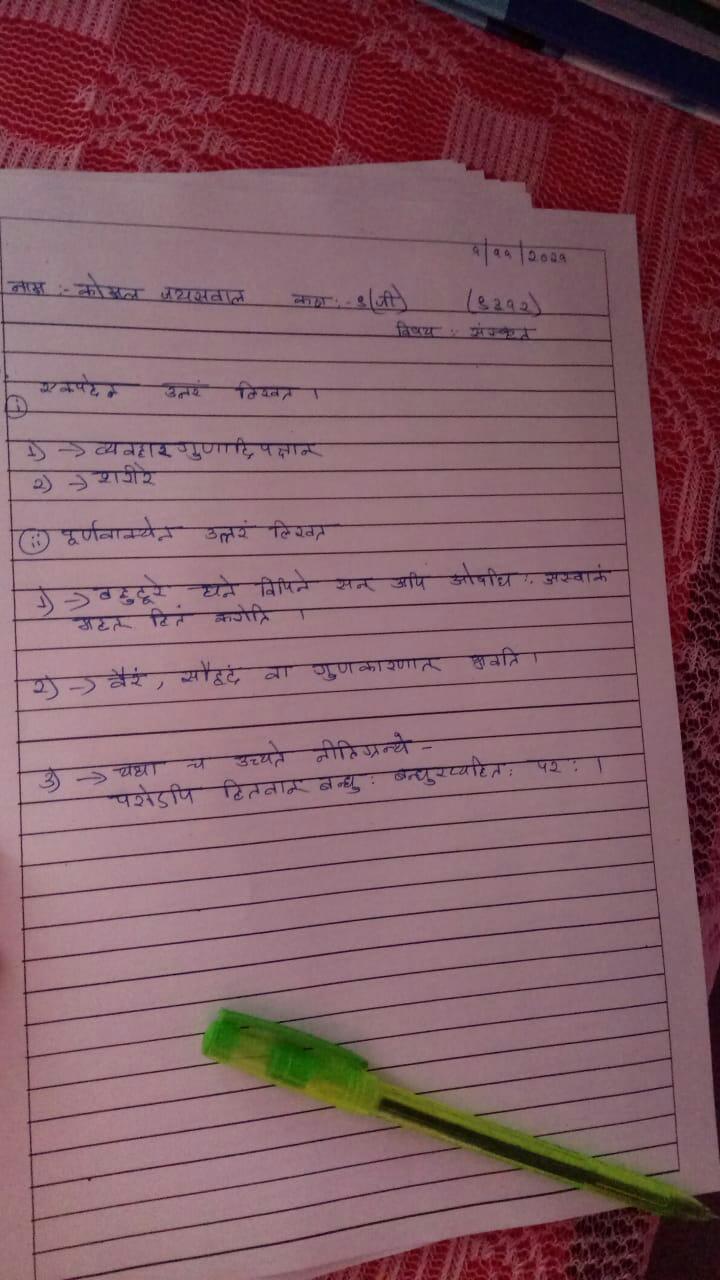 १/११/२०२१
नाम :- कोमल जयसवाल कक्षा :- ९(जी) (९३१२)
विषय : संस्कृत
i एकपदेन उत्तरं लिखत ।
1) →
2) → शरीरे
ii पूर्णवाक्येन उत्तरं लिखत
1) → बहुदूरे घने विपिने सन् अपि ओषधि : अस्माकं
महत् हितं करोति ।
2) → वैरं , सौहृदं वा गुणकारणात् भवति ।
3) → यथा च उच्यते नीतिग्रन्थे -
परोऽपि हितवान् बन्धु : बन्धुरप्यहित : पर : ।